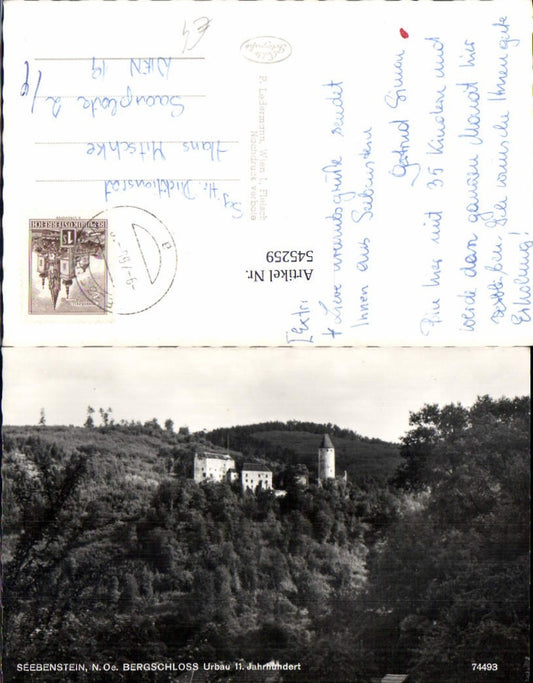 Liebe Urlaubsgrüße sendet
Ihnen aus Seebenstein
Gertrud Simon
Bin hier mit 35 Kindern und
werde den ganzen Monat hier
sein. Ich wünsche Ihnen gute
Erholung!
P. Ledermann, Wien I, Fleischm
Nachdruck verboten
Hr. Direktionsrat
Hans Mitschke
Saarplatz
WIEN 19
REPUBLIK ÖSTERREICH
Artikel Nr.
545259
€4
SEEBENSTEIN, N. Oe. BERGSCHLOSS Urbau 11. Jahrhundert
74493